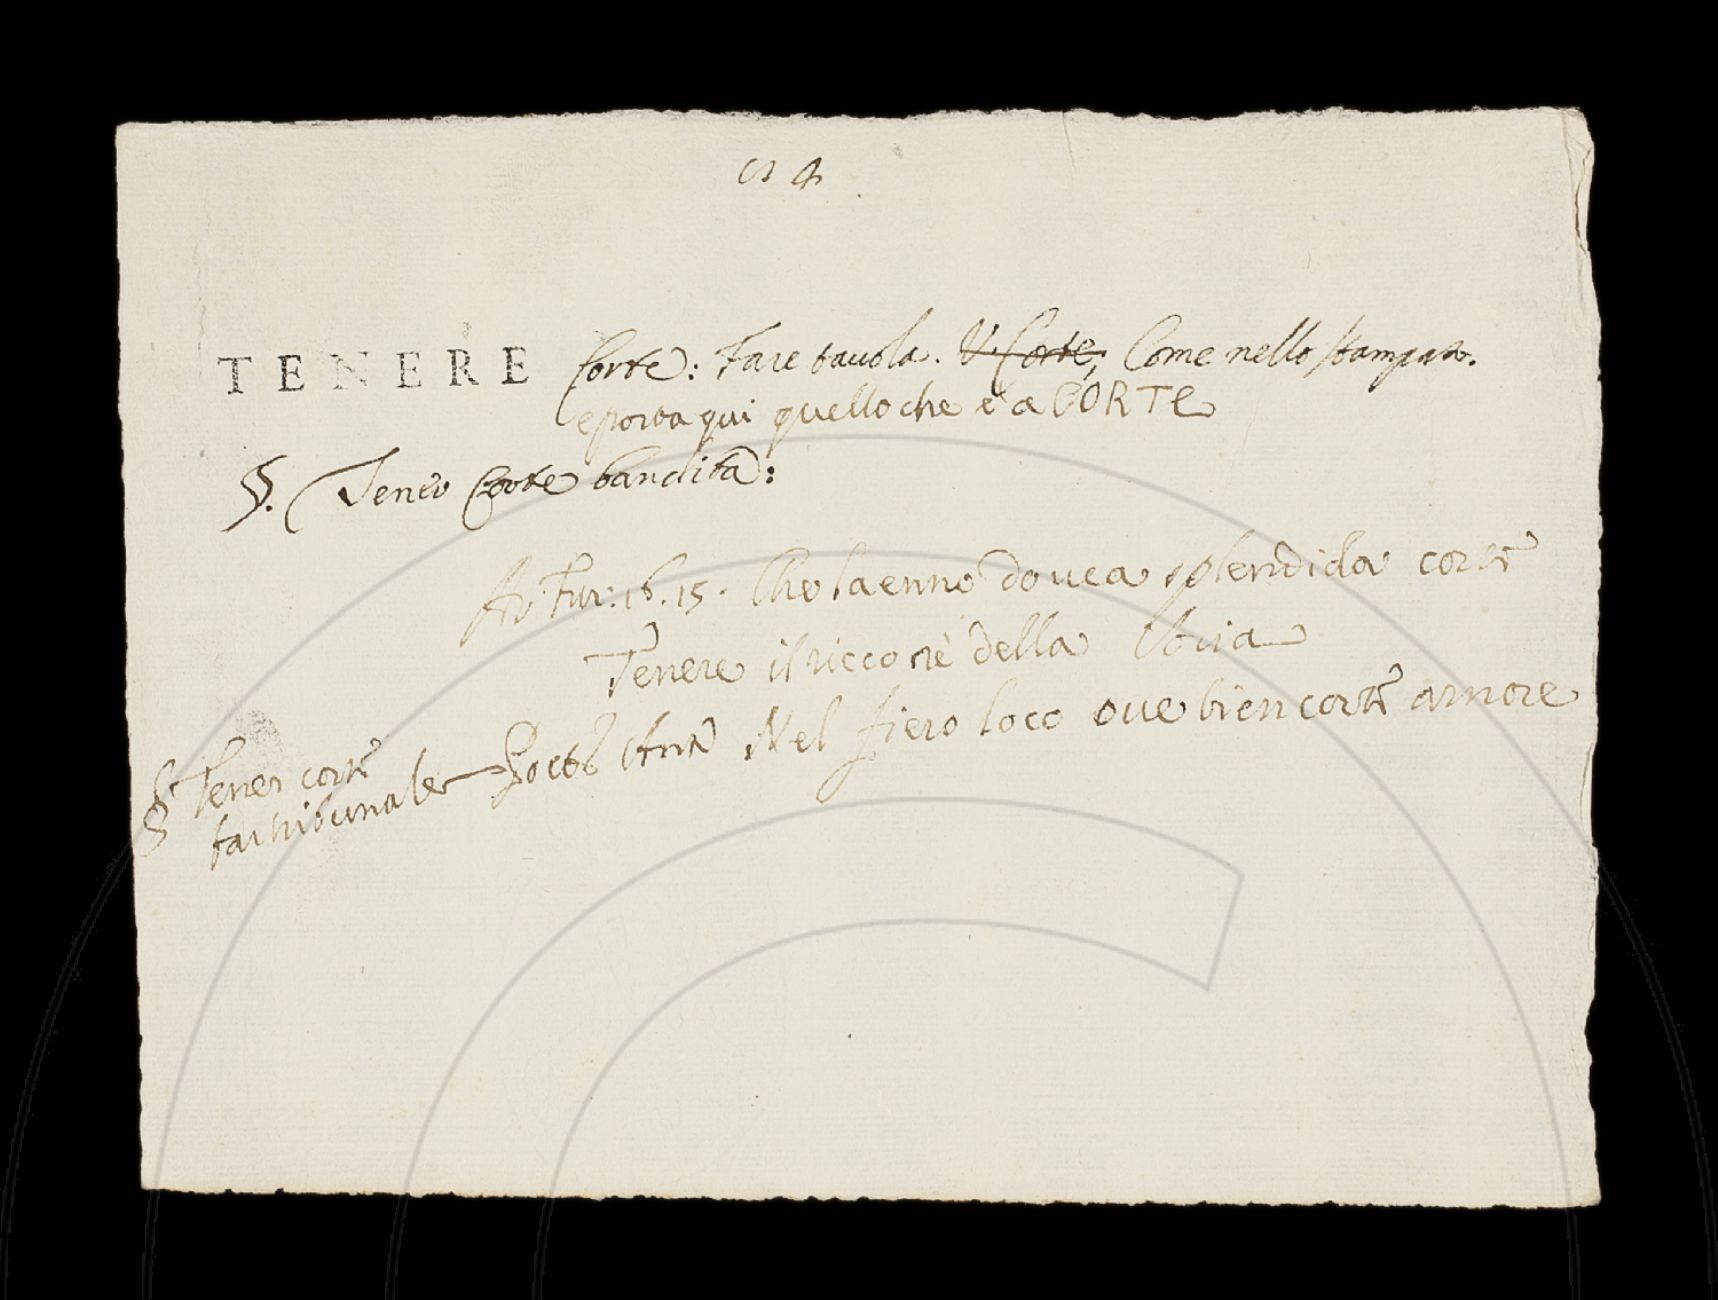 TENERE Corte: Fare tavola. V. Corte, Come nello stampato.
e porta qui quello che è a CORTE
§. Tener Corte bandita:
Ar. Fur: 16. 15. Che la dovea splendida corte
Tenere il ricco re della Soria
§ Tener corte
far tribunale Nel fiero loco ove tien corte amore